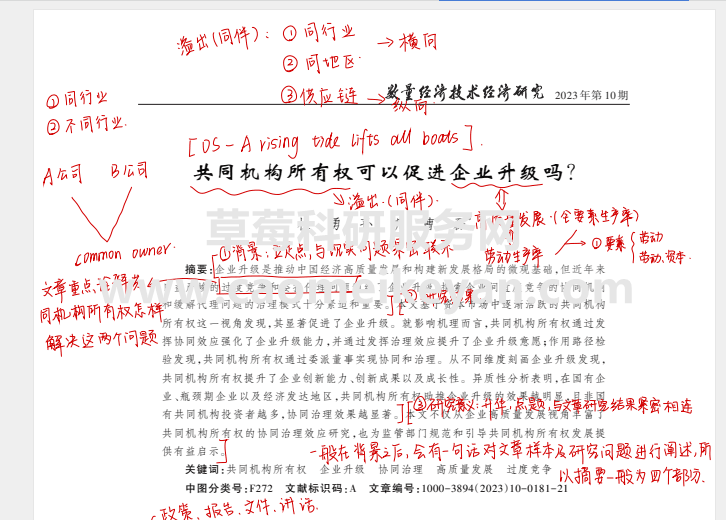 溢出(同伴): ① 同行业
② 同地区 → 横向
③ 供应链 → 纵向
数量经济技术经济研究 2023年第10期
① 同行业
② 不同行业.
[DS - A rising tide lifts all boats].
A公司 B公司
共同机构所有权可以促进企业升级吗?
↘溢出.(同伴).
发展.(全要素生产率)
劳动生产率
① 要素
劳动
劳动、资本.
草莓科研服务网
common owner.
① 背景:
摘要:企业升级是推动中国经济高质量发展和构建新发展格局的微观基础,但近年来
文章重点论
同机构所有权怎样
解决这两个问题
和缓解代理问题的治理模式十分紧迫和重要。
所有权这一视角发现,其显著促进了企业升级。就影响机理而言,共同机构所有权通过发
挥协同效应强化了企业升级能力,并通过发挥治理效应提升了企业升级意愿;作用路径检
验发现,共同机构所有权通过委派董事实现协同和治理。从不同维度刻画企业升级发现,
共同机构所有权提升了企业创新能力、创新成果以及成长性。异质性分析表明,在国有企
业、瓶颈期企业以及经济发达地区,共同机构所有权助推企业升级的效果越明显,且非国
有共同机构投资者越多,协同治理效果越显著。本文不仅从企业高质量发展视角丰富了
③ 研究意义: 升华,点题,与文章研究结果紧密相连
共同机构所有权的协同治理效应研究,也为监管部门规范和引导共同机构所有权发展提
供有益启示。
一般在背景之后,会有一句话对文章样本及研究问题进行阐述,所
以摘要一般为四个部分.
关键词:共同机构所有权 企业升级 协同治理 高质量发展 过度竞争
中图分类号:F272 文献标识码:A 文章编号:1000-3894(2023)10-0181-21
政策、报告、文件、讲话.